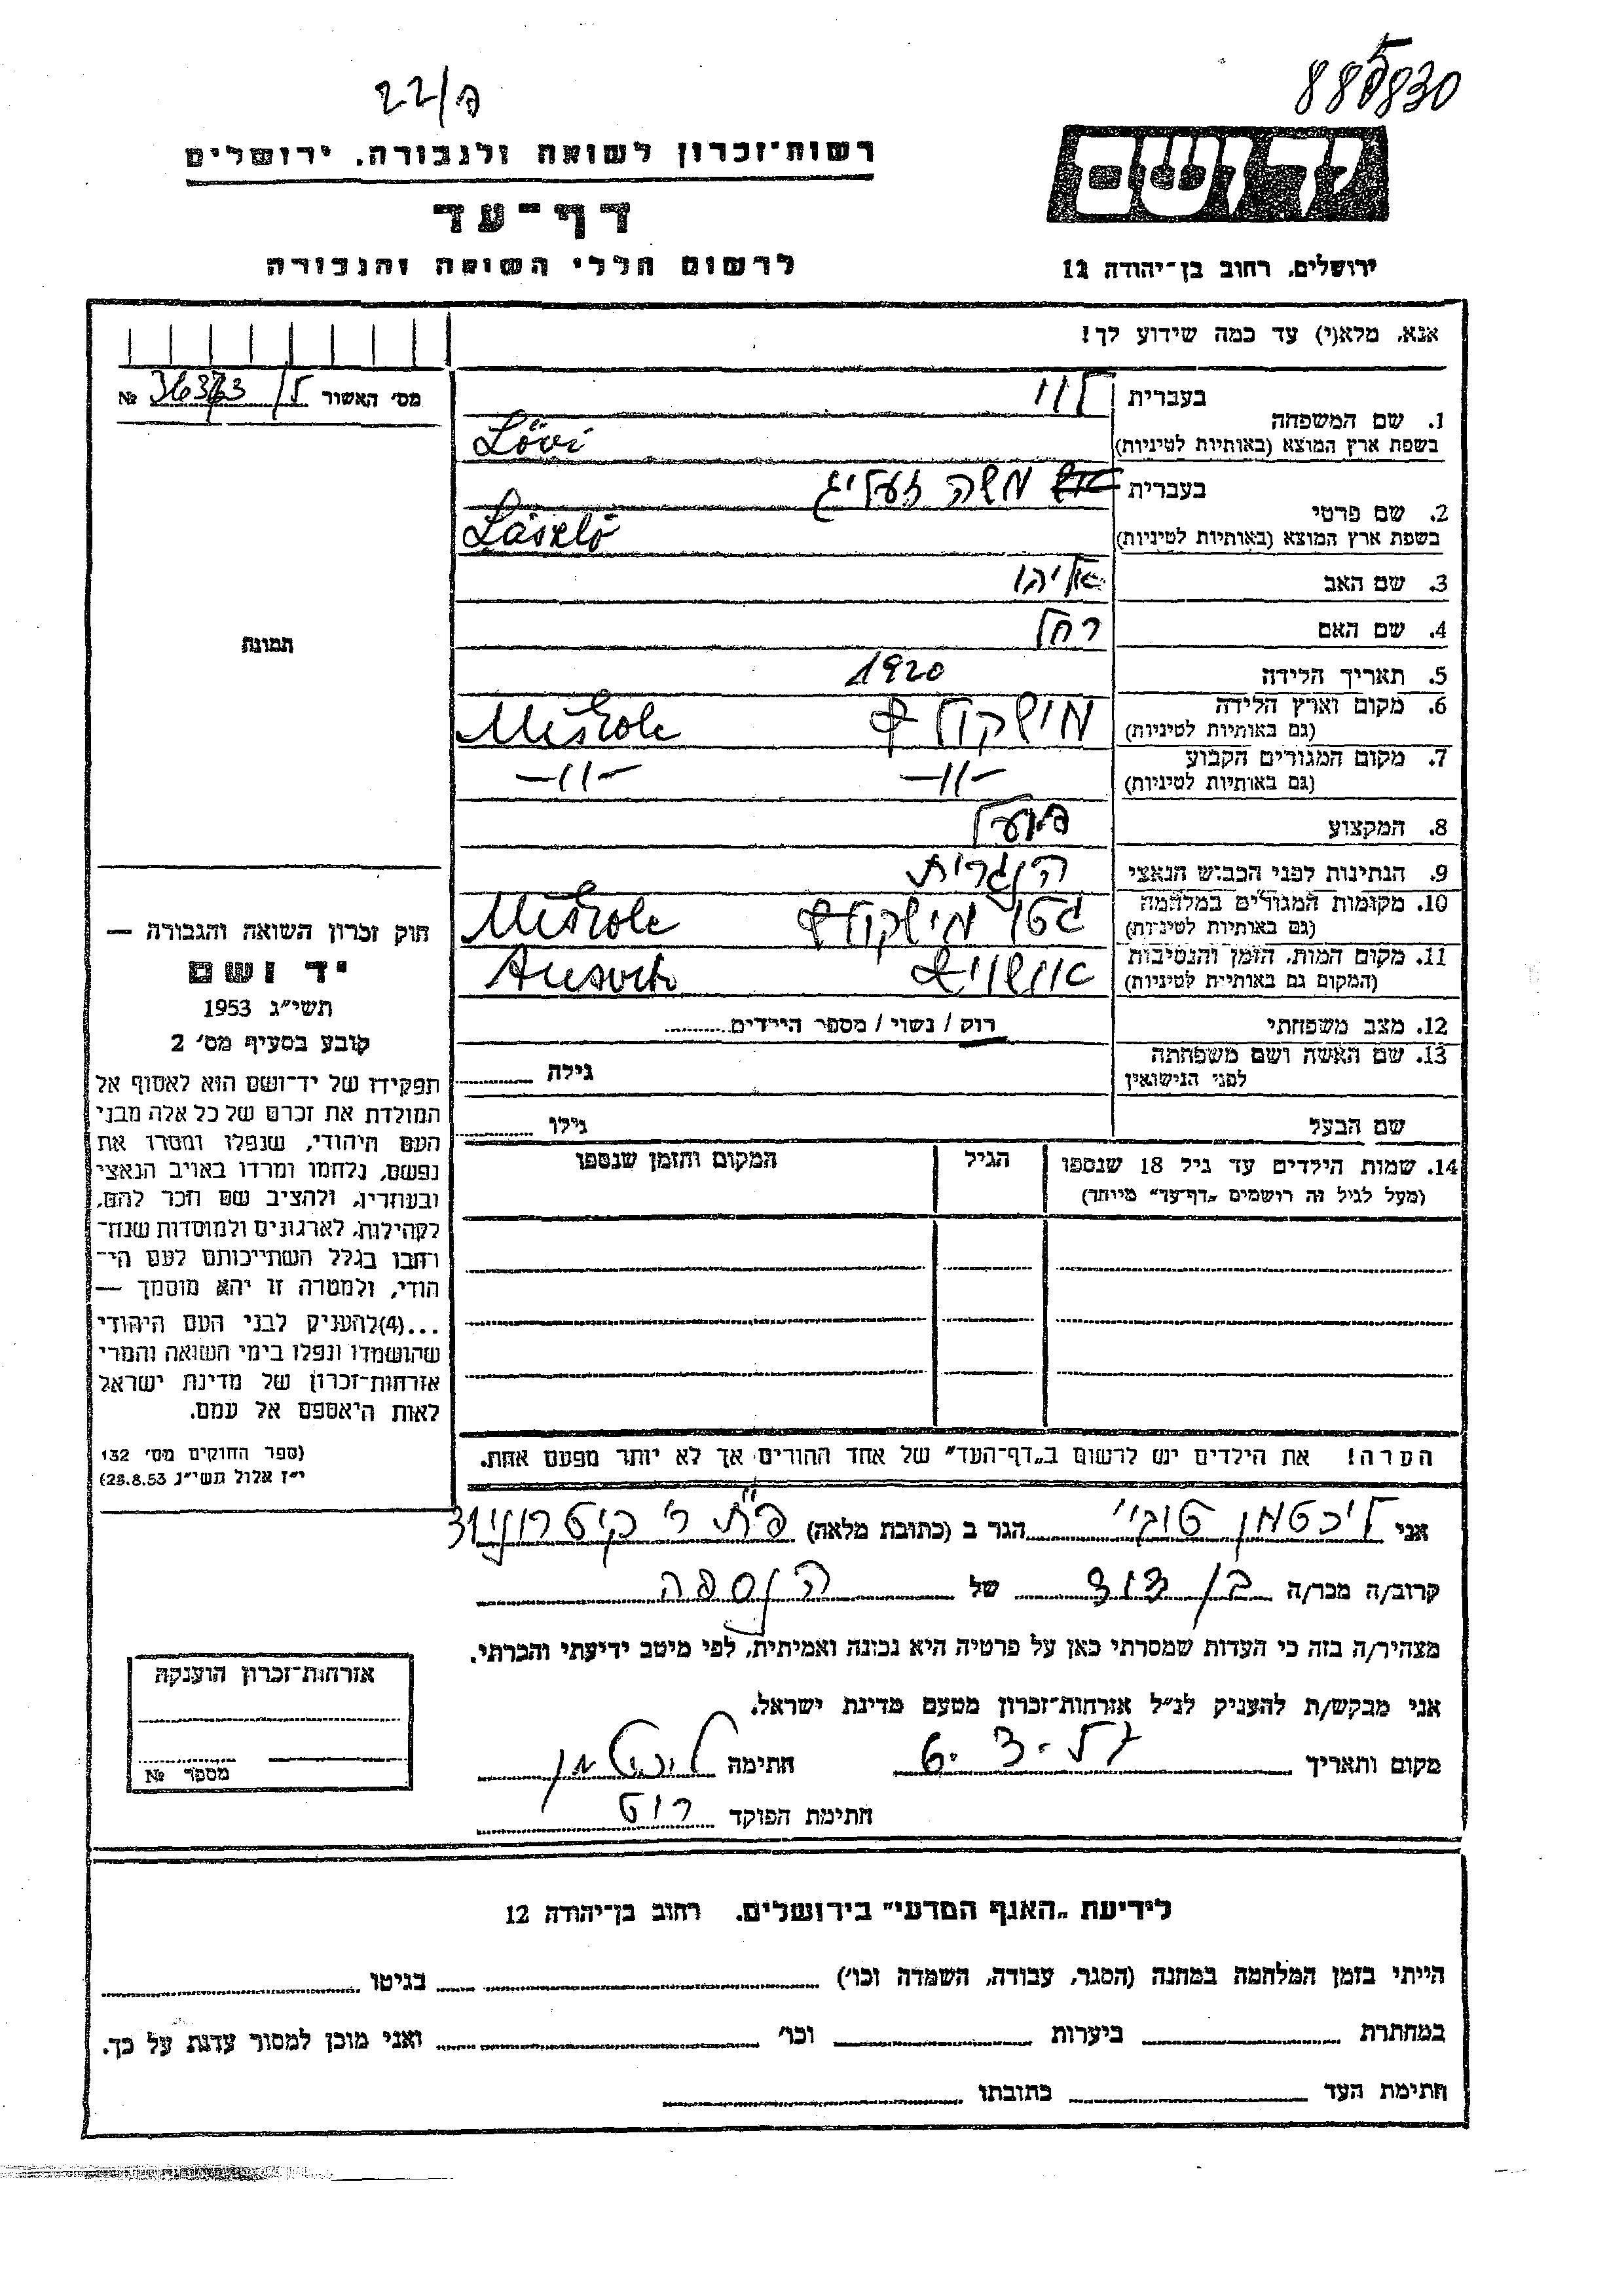 885830
22/פ
ידושם
ירושלים, רחוב בן־יהודה 12
רשות־זכרון לשואה ולגבורה, ירושלים
דף־עד
לרשום חללי השואה והגבורה
אנא, מלא(י) עד כמה שידוע לך!
מס׳ האשור № ל/
1. שם המשפחה
בעברית לוי
בשפת ארץ המוצא (באותיות לטיניות) Lövi
2. שם פרטי
בעברית משה זעליג
בשפת ארץ המוצא (באותיות לטיניות) László
3. שם האב אליהו
4. שם האם רחל
5. תאריך הלידה 1920
6. מקום וארץ הלידה מישקולץ Miskolc
(גם באותיות לטיניות)
7. מקום המגורים הקבוע -"- -"-
(גם באותיות לטיניות)
8. המקצוע פועל
9. הנתינות לפני הכבוש הנאצי הונגרית
10. מקומות המגורים במלחמה גטו מישקולץ Miskolc
(גם באותיות לטיניות)
11. מקום המות, הזמן והנסיבות אוושוויץ
(המקום גם באותיות לטיניות)
12. מצב משפחתי רוק / נשוי / מספר הילדים
13. שם האשה ושם משפחתה גילה
לפני הנישואין
שם הבעל גילו
14. שמות הילדים עד גיל 18 שנספו הגיל המקום והזמן שנספו
(מעל לגיל זה רושמים „דף־עד" מיוחד)
הערה! את הילדים יש לרשום ב„דף־העד" של אחד ההורים אך לא יותר מפעם אחת.
תמונה
חוק זכרון השואה והגבורה —
יד ושם
תשי״ג 1953
קובע בסעיף מס׳ 2
תפקידו של יד־ושם הוא לאסוף אל
המולדת את זכרם של כל אלה מבני
העם היהודי, שנפלו ומסרו את
נפשם, נלחמו ומרדו באויב הנאצי
ובעוזריו, ולהציב שם וזכר להם,
לקהילות, לארגונים ולמוסדות שנח־
רבו בגלל השתייכותם לעם הי־
הודי, ולמטרה זו יהא מוסמך —
...(4)להעניק לבני העם היהודי
שהושמדו ונפלו בימי השואה והמרי
אזרחות־זכרון של מדינת ישראל
לאות היאספם אל עמם.
(ספר החוקים מס׳ 132
י״ז אלול תשי״ג 28.8.53)
אני ליכטמן טובי׳ הגר ב (כתובת מלאה) פ״ת ר׳
קרוב/ה מכר/ה בן דוד של הנספה
מצהיר/ה בזה כי העדות שמסרתי כאן על פרטיה היא נכונה ואמיתית, לפי מיטב ידיעתי והכרתי.
אני מבקש/ת להעניק לנ״ל אזרחות־זכרון מטעם מדינת ישראל.
מקום ותאריך 6.3.57 חתימה ליכטמן
חתימת הפוקד רוט
אזרחות־זכרון הוענקה
מספר №
לידיעת „האגף המדעי" בירושלים, רחוב בן־יהודה 12
הייתי בזמן המלחמה במחנה (הסגר, עבודה, השמדה וכו׳) בגיטו
במחתרת ביערות וכו׳ ואני מוכן למסור עדות על כך.
חתימת העד כתובתו